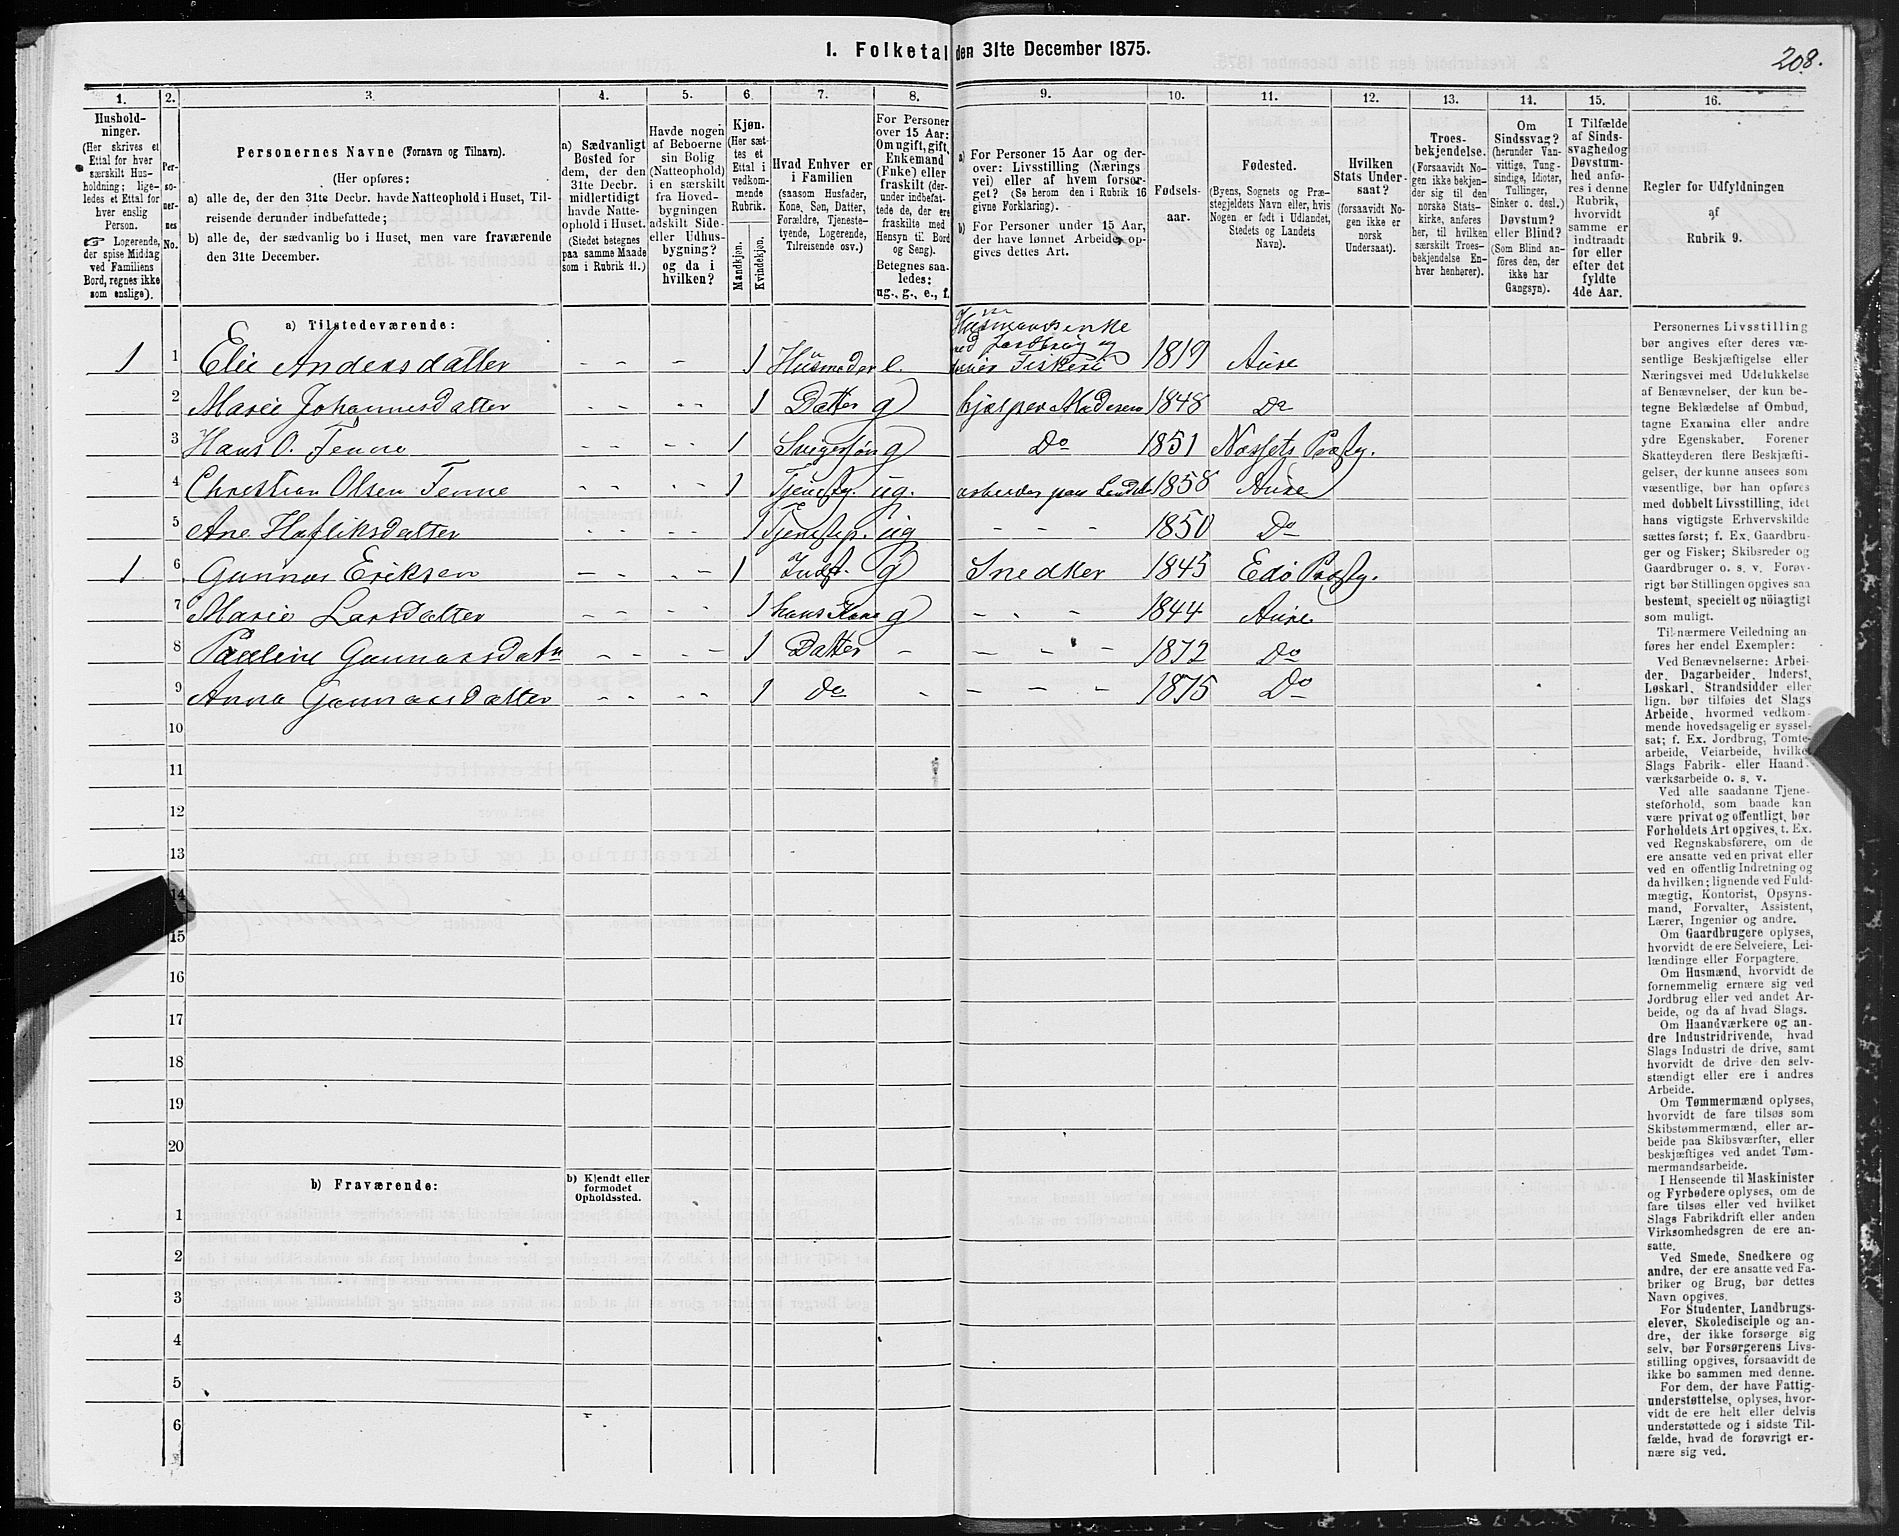 208.
I. Folketal den 31te December 1875.
1. 2. 3. 4. 5. 6. 7. 8. 9. 10. 11. 12. 13. 14. 15. 16.
Hushold-
ninger.
(Her skrives et
Ettal for hver
særskilt Hus-
holdning; lige-
ledes et Ettal for
hver enslig
Person.
☞ Logerende,
der spise Middag
ved Familiens
Bord, regnes ikke
som enslige).
Per-
so-
ner-
nes
No.
Personernes Navne (Fornavn og Tilnavn).
(Her opføres:
a) alle de, der den 31te Decbr. havde Natteophold i Huset, Til-
reisende derunder indbefattede;
b) alle de, der sædvanlig bo i Huset, men vare fraværende
den 31te December.
a) Sædvanligt
Bosted for
dem, der den
31te Decbr.
midlertidigt
havde Natte-
ophold i Huset.
(Stedet betegnes
paa samme Maade
som i Rubrik 11.)
Havde nogen
af Beboerne
sin Bolig
(Natteophold)
i en særskilt
fra Hoved-
bygningen
adskilt Side-
eller Udhus-
bygning?
og da i
hvilken?
Kjøn.
(Her sæt-
tes et
Ettal i
vedkom-
mende
Rubrik.
Mandkjøn.
Kvindekjøn.
Hvad Enhver er
i Familien
(saasom Husfader,
Kone, Søn, Datter,
Forældre, Tjeneste-
tyende, Logerende,
Tilreisende osv.)
For Personer
over 15 Aar:
Om ugift, gift,
Enkemand
(Enke) eller
fraskilt (der-
under indbefat-
tede de, der ere
fraskilte med
Hensyn til Bord
og Seng).
Betegnes saa-
ledes:
ug., g., e., f.
a) For Personer 15 Aar og der-
over: Livsstilling (Nærings-
vei) eller af hvem forsør-
get? (Se herom den i Rubrik 16
givne Forklaring).
b) For Personer under 15 Aar,
der have lønnet Arbeide, op-
gives dettes Art.
Fødsels-
aar.
Fødested.
(Byens, Sognets og Præ-
stegjeldets Navn eller, hvis
Nogen er født i Udlandet,
Stedets og Landets
Navn).
Hvilken
Stats Under-
saat?
(forsaavidt No-
gen ikke er
norsk
Undersaat).
Troes-
bekjendelse.
(Forsaavidt No-
gen ikke bekjen-
der sig til den
norske Stats-
kirke, anføres
her, til hvilken
særskilt Troes-
bekjendelse En-
hver henhører).
Om
Sindssvag?
(herunder Van-
vittige, Tung-
sindige, Idioter,
Tullinger,
Sinker o. desl.)
Døvstum?
eller Blind?
(Som Blind an-
føres den, der
ikke har
Gangsyn).
I Tilfælde
af Sinds-
svaghed og
Døvstum-
hed anfø-
res i denne
Rubrik,
hvorvidt
samme er
indtraadt
før eller
efter det
fyldte
4de Aar.
Regler for Udfyldningen
af
Rubrik 9.
a) Tilstedeværende:
Husmandsenke
Jordbrug og
1 1 Elie Andersdatter - - - 1 Husmoder e. Fiskeri 1819 Aure
2 Marie Johannesdatter - - - - 1 Datter g hjælper Moderen 1848 Do
3 Hans O. Tenne - - - - 1 Svigersøn g Do 1851 Næssets Præstg.
4 Christian Olsen Tenne - - - - 1 Tjenestg. ug. arbeider paa 1858 Aure
5 Ane - - - - 1 Tjenestep. ug - - - 1850 Do
1 6 Gunnar Eriksen - - - - 1 Indst. g Snedker 1845 Edø Præstg.
7 Marie Larsdatter - - - - 1 hans Kone g - - - 1844 Aure
8 Pauline - - - - 1 Datter - - - - 1872 Do
9 Anna Gunnarsdatter - - - - 1 do - - - - 1875 Do
10
11
12
13
14
15
16
17
18
19
20
b) Fraværende:
b) Kjendt eller
formodet
Opholdssted.
1
2
3
4
5
6
Personernes Livsstilling
bør angives efter deres væ-
sentlige Beskjæftigelse eller
Næringsvei med Udelukkelse
af Benævnelser, der kun be-
tegne Beklædelse af Ombud,
tagne Examina eller andre
ydre Egenskaber. Forener
Skatteyderen flere Beskjæfti-
gelser, der kunne ansees som
væsentlige, bør han opføres
med dobbelt Livsstilling, idet
hans vigtigste Erhvervskilde
sættes først; f. Ex. Gaardbru-
ger og Fisker; Skibsreder og
Gaardbruger o. s. v. Forøv-
rigt bør Stillingen opgives saa
bestemt, specielt og nöiagtigt
som muligt.
Til nærmere Veiledning an-
føres her endel Exempler:
Ved Benævnelserne: Arbei-
der, Dagarbeider, Inderst,
Løskarl, Strandsidder eller
lign. bør tilføies det Slags
Arbeide, hvormed vedkom-
mende hovedsagelig er syssel-
sat; f. Ex. Jordbrug, Tomte-
arbeide, Veiarbeide, hvilket
Slags Fabrik- eller Haand-
værksarbeide o. s. v.
Ved alle saadanne Tjene-
steforhold, som baade kan
være privat og offentligt, bør
Forholdets Art opgives, t. Ex.
ved Regnskabsførere, om de
ere ansatte ved en privat eller
ved en offentlig Indretning og
da hvilken; lignende ved Fuld-
mægtig, Kontorist, Opsyns-
mand, Forvalter, Assistent,
Lærer, Ingeniør og andre.
Om Gaardbrugere oplyses,
hvorvidt de ere Selveiere, Lei-
lændinge eller Forpagtere.
Om Husmænd, hvorvidt de
fornemmelig ernære sig ved
Jordbrug eller ved andet Ar-
beide, og da af hvad Slags.
Om Haandværkere og an-
dre Industridrivende, hvad
Slags Industri de drive, samt
hvorvidt de drive den selv-
stændigt eller ere i andres
Arbeide.
Om Tømmermænd oplyses,
hvorvidt de fare tilsøs som
Skibstømmermænd, eller ar-
beide paa Skibsværfter, eller
beskjæftiges ved andet Tøm-
mermandsarbeide.
I Henseende til Maskinister
og Fyrbødere oplyses, om de
fare tilsøs eller ved hvilket
Slags Fabrikdrift eller anden
Virksomhedsgren de ere an-
satte.
Ved Smede, Snedkere og
andre, der ere ansatte ved Fa-
briker og Brug, bør dettes
Navn opgives.
For Studenter, Landbrugs-
elever, Skoledisciple og an-
dre, der ikke forsørge sig
selv, bør Forsørgerens Livs-
stilling opgives, forsaavidt de
ikke bo sammen med denne.
For dem, der have Fattig-
understøttelse, oplyses, hvor-
vidt de ere helt eller delvis
understøttede og i sidste Til-
fælde, hvad de forøvrigt er-
nære sig ved.